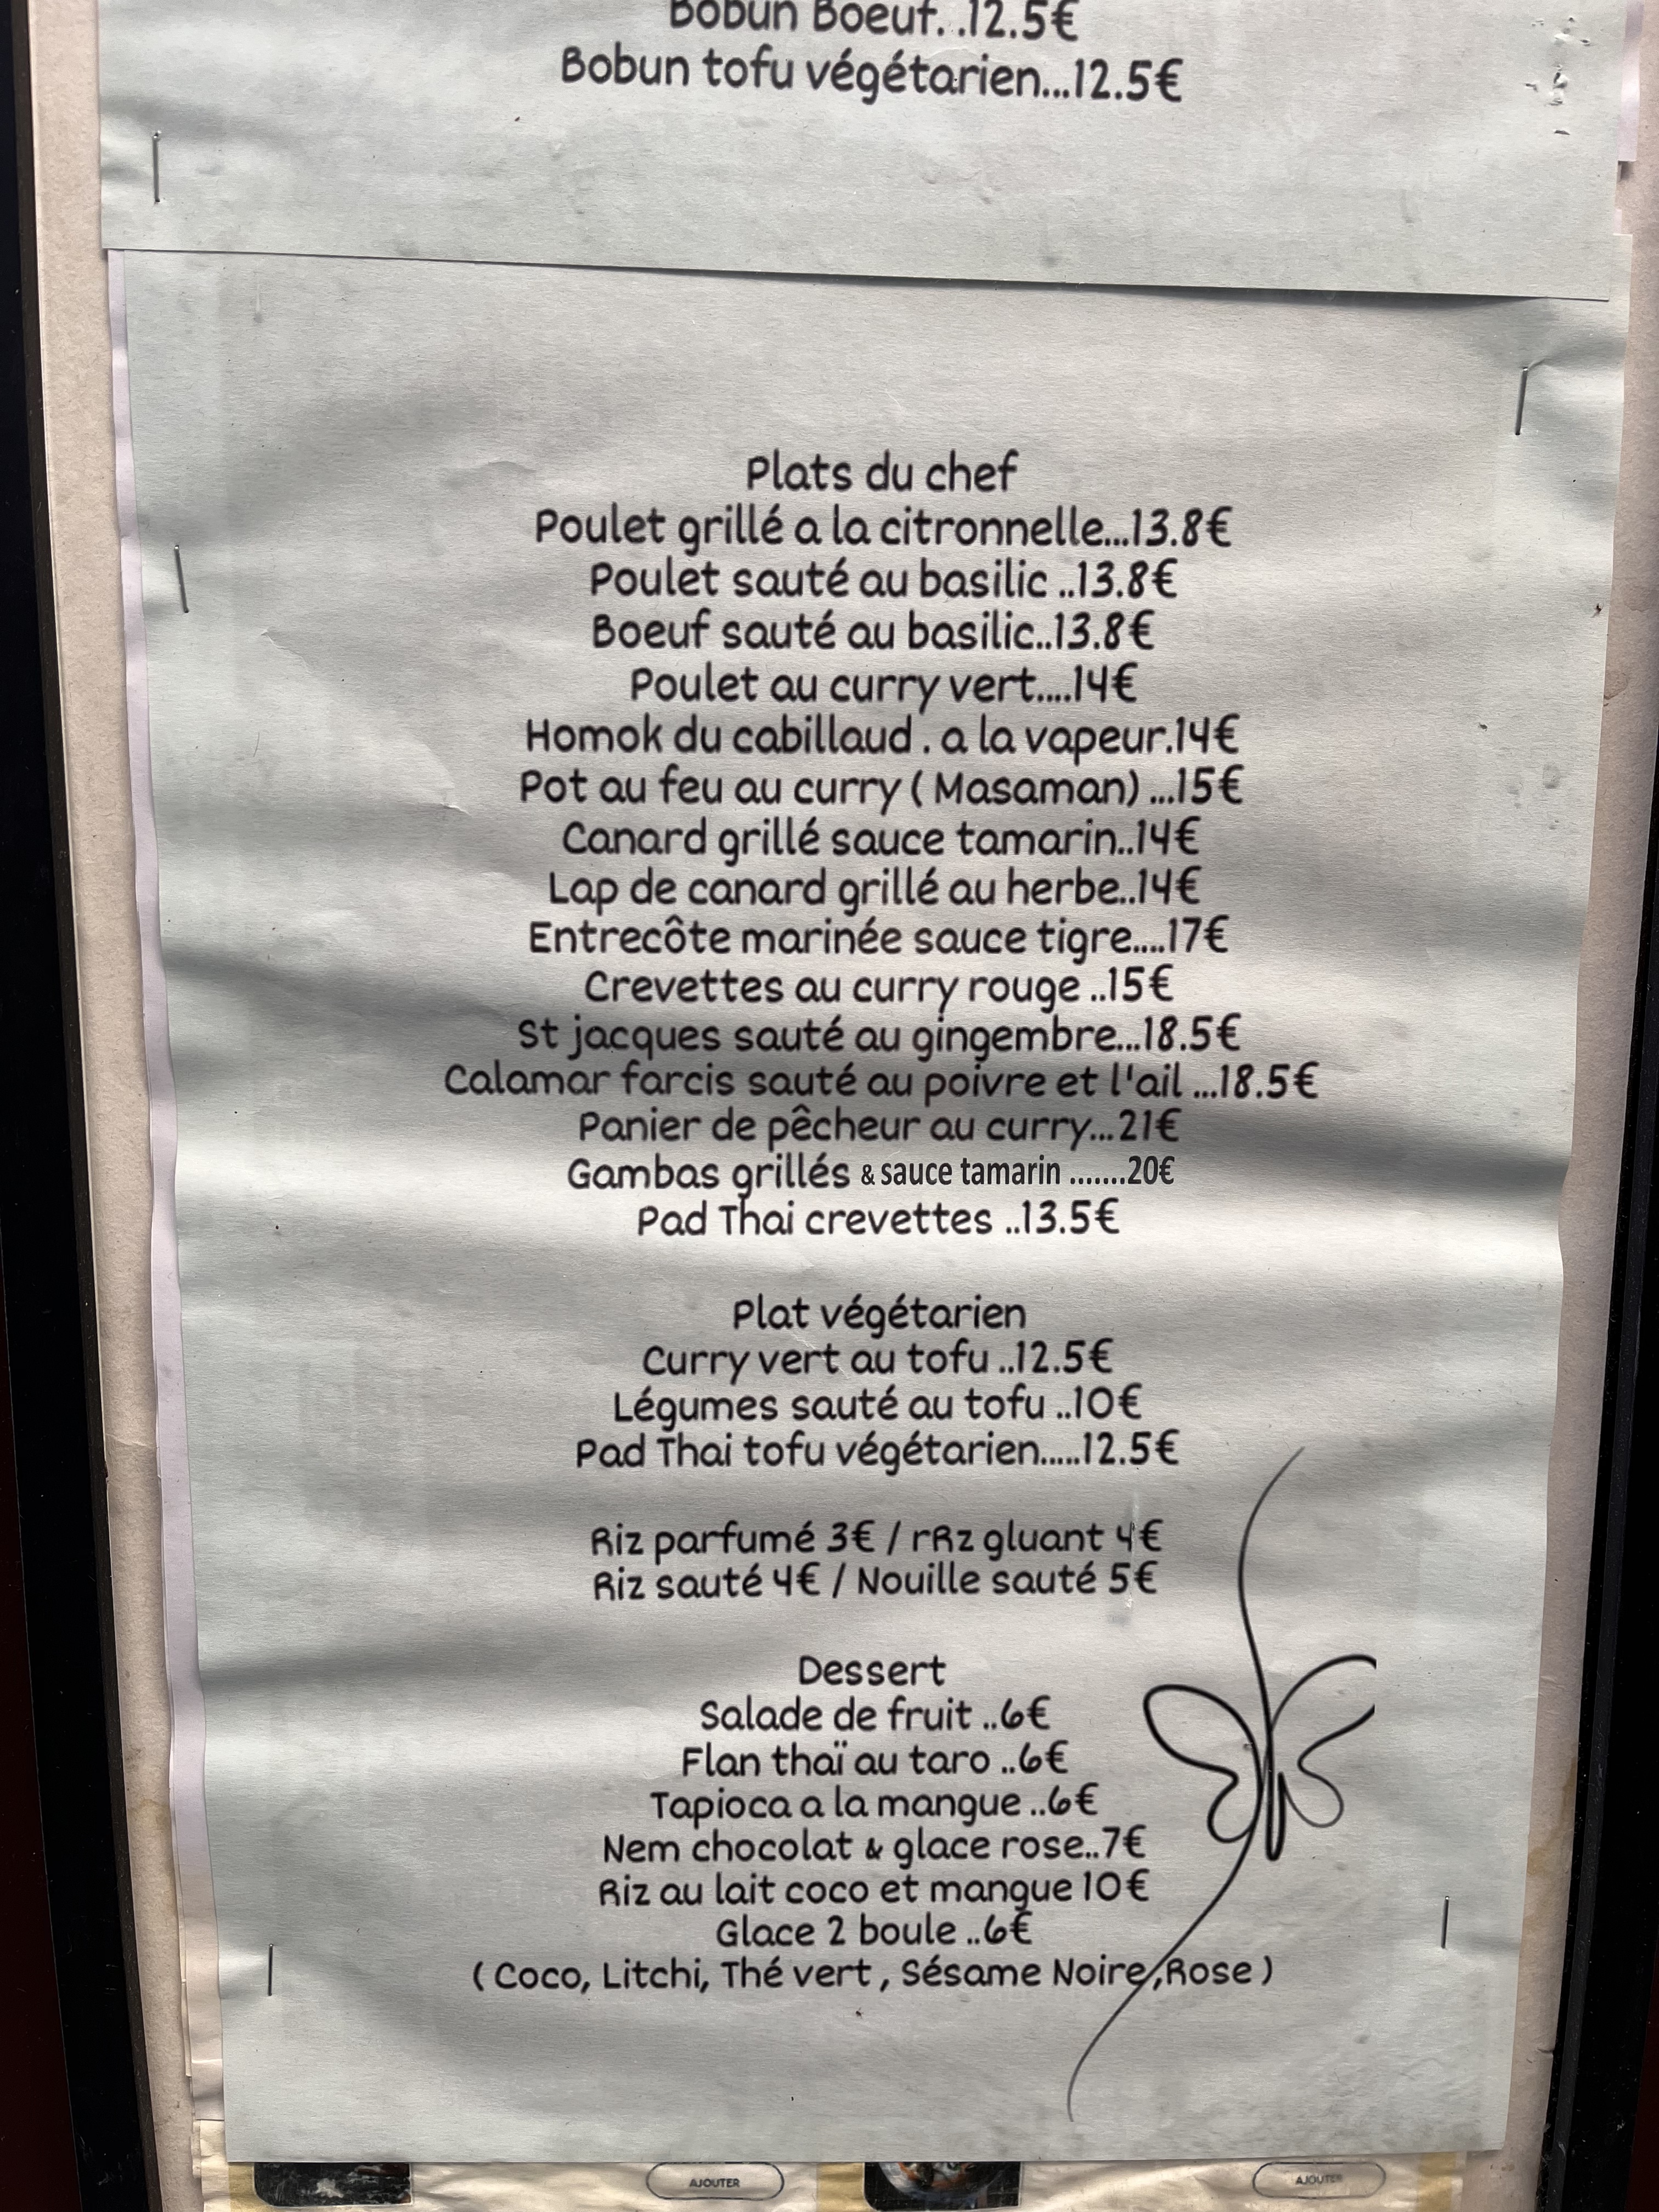 Bobun Boeuf. .12.5€
Bobun tofu végétarien...12.5€
Plats du chef
Poulet grillé a la citronnelle...13.8€
Poulet sauté au basilic ..13.8€
Boeuf sauté au basilic..13.8€
Poulet au curry vert....14€
Homok du cabillaud . a la vapeur.14€
Pot au feu au curry ( Masaman) ...15€
Canard grillé sauce tamarin..14€
Lap de canard grillé au herbe..14€
Entrecôte marinée sauce tigre....17€
Crevettes au curry rouge ..15€
St jacques sauté au gingembre...18.5€
Calamar farcis sauté au poivre et l'ail ...18.5€
Panier de pêcheur au curry...21€
Gambas grillés & sauce tamarin .......20€
Pad Thai crevettes ..13.5€
Plat végétarien
Curry vert au tofu ..12.5€
Légumes sauté au tofu ..10€
Pad Thai tofu végétarien.....12.5€
Riz parfumé 3€ / rRz gluant 4€
Riz sauté 4€ / Nouille sauté 5€
Dessert
Salade de fruit ..6€
Flan thaï au taro ..6€
Tapioca a la mangue ..6€
Nem chocolat & glace rose..7€
Riz au lait coco et mangue 10€
Glace 2 boule ..6€
( Coco, Litchi, Thé vert , Sésame Noire,Rose )
AJOUTER
AJOUTER